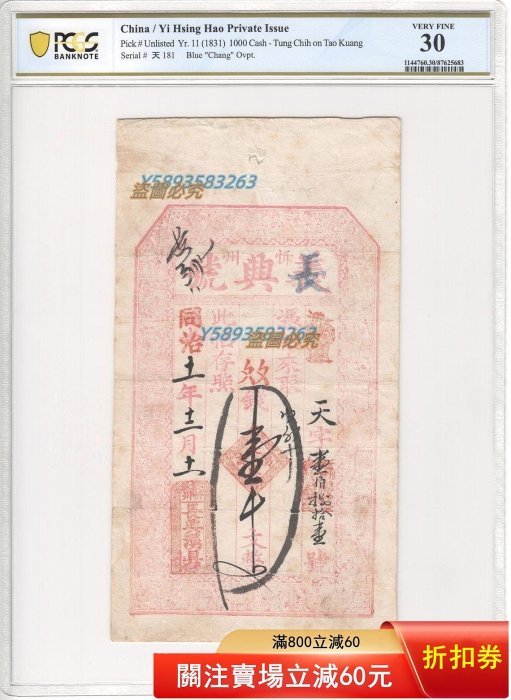 PCGS
BANKNOTE
China / Yi Hsing Hao Private Issue
Pick # Unlisted Yr. 11 (1831) 1000 Cash - Tung Chih on Tao Kuang
Serial # 天 181 Blue "Chang" Ovpt.
VERY FINE
30
1144760.30/87625683
Y5893583263
盜圖必究
忻州
長興號
Y5893583263
盜圖必究
憑
天字壹佰捌拾壹號
壹千文整
此帖存照
同治十一年十二月十一
滿800立減60
關注賣場立減60元
折扣券